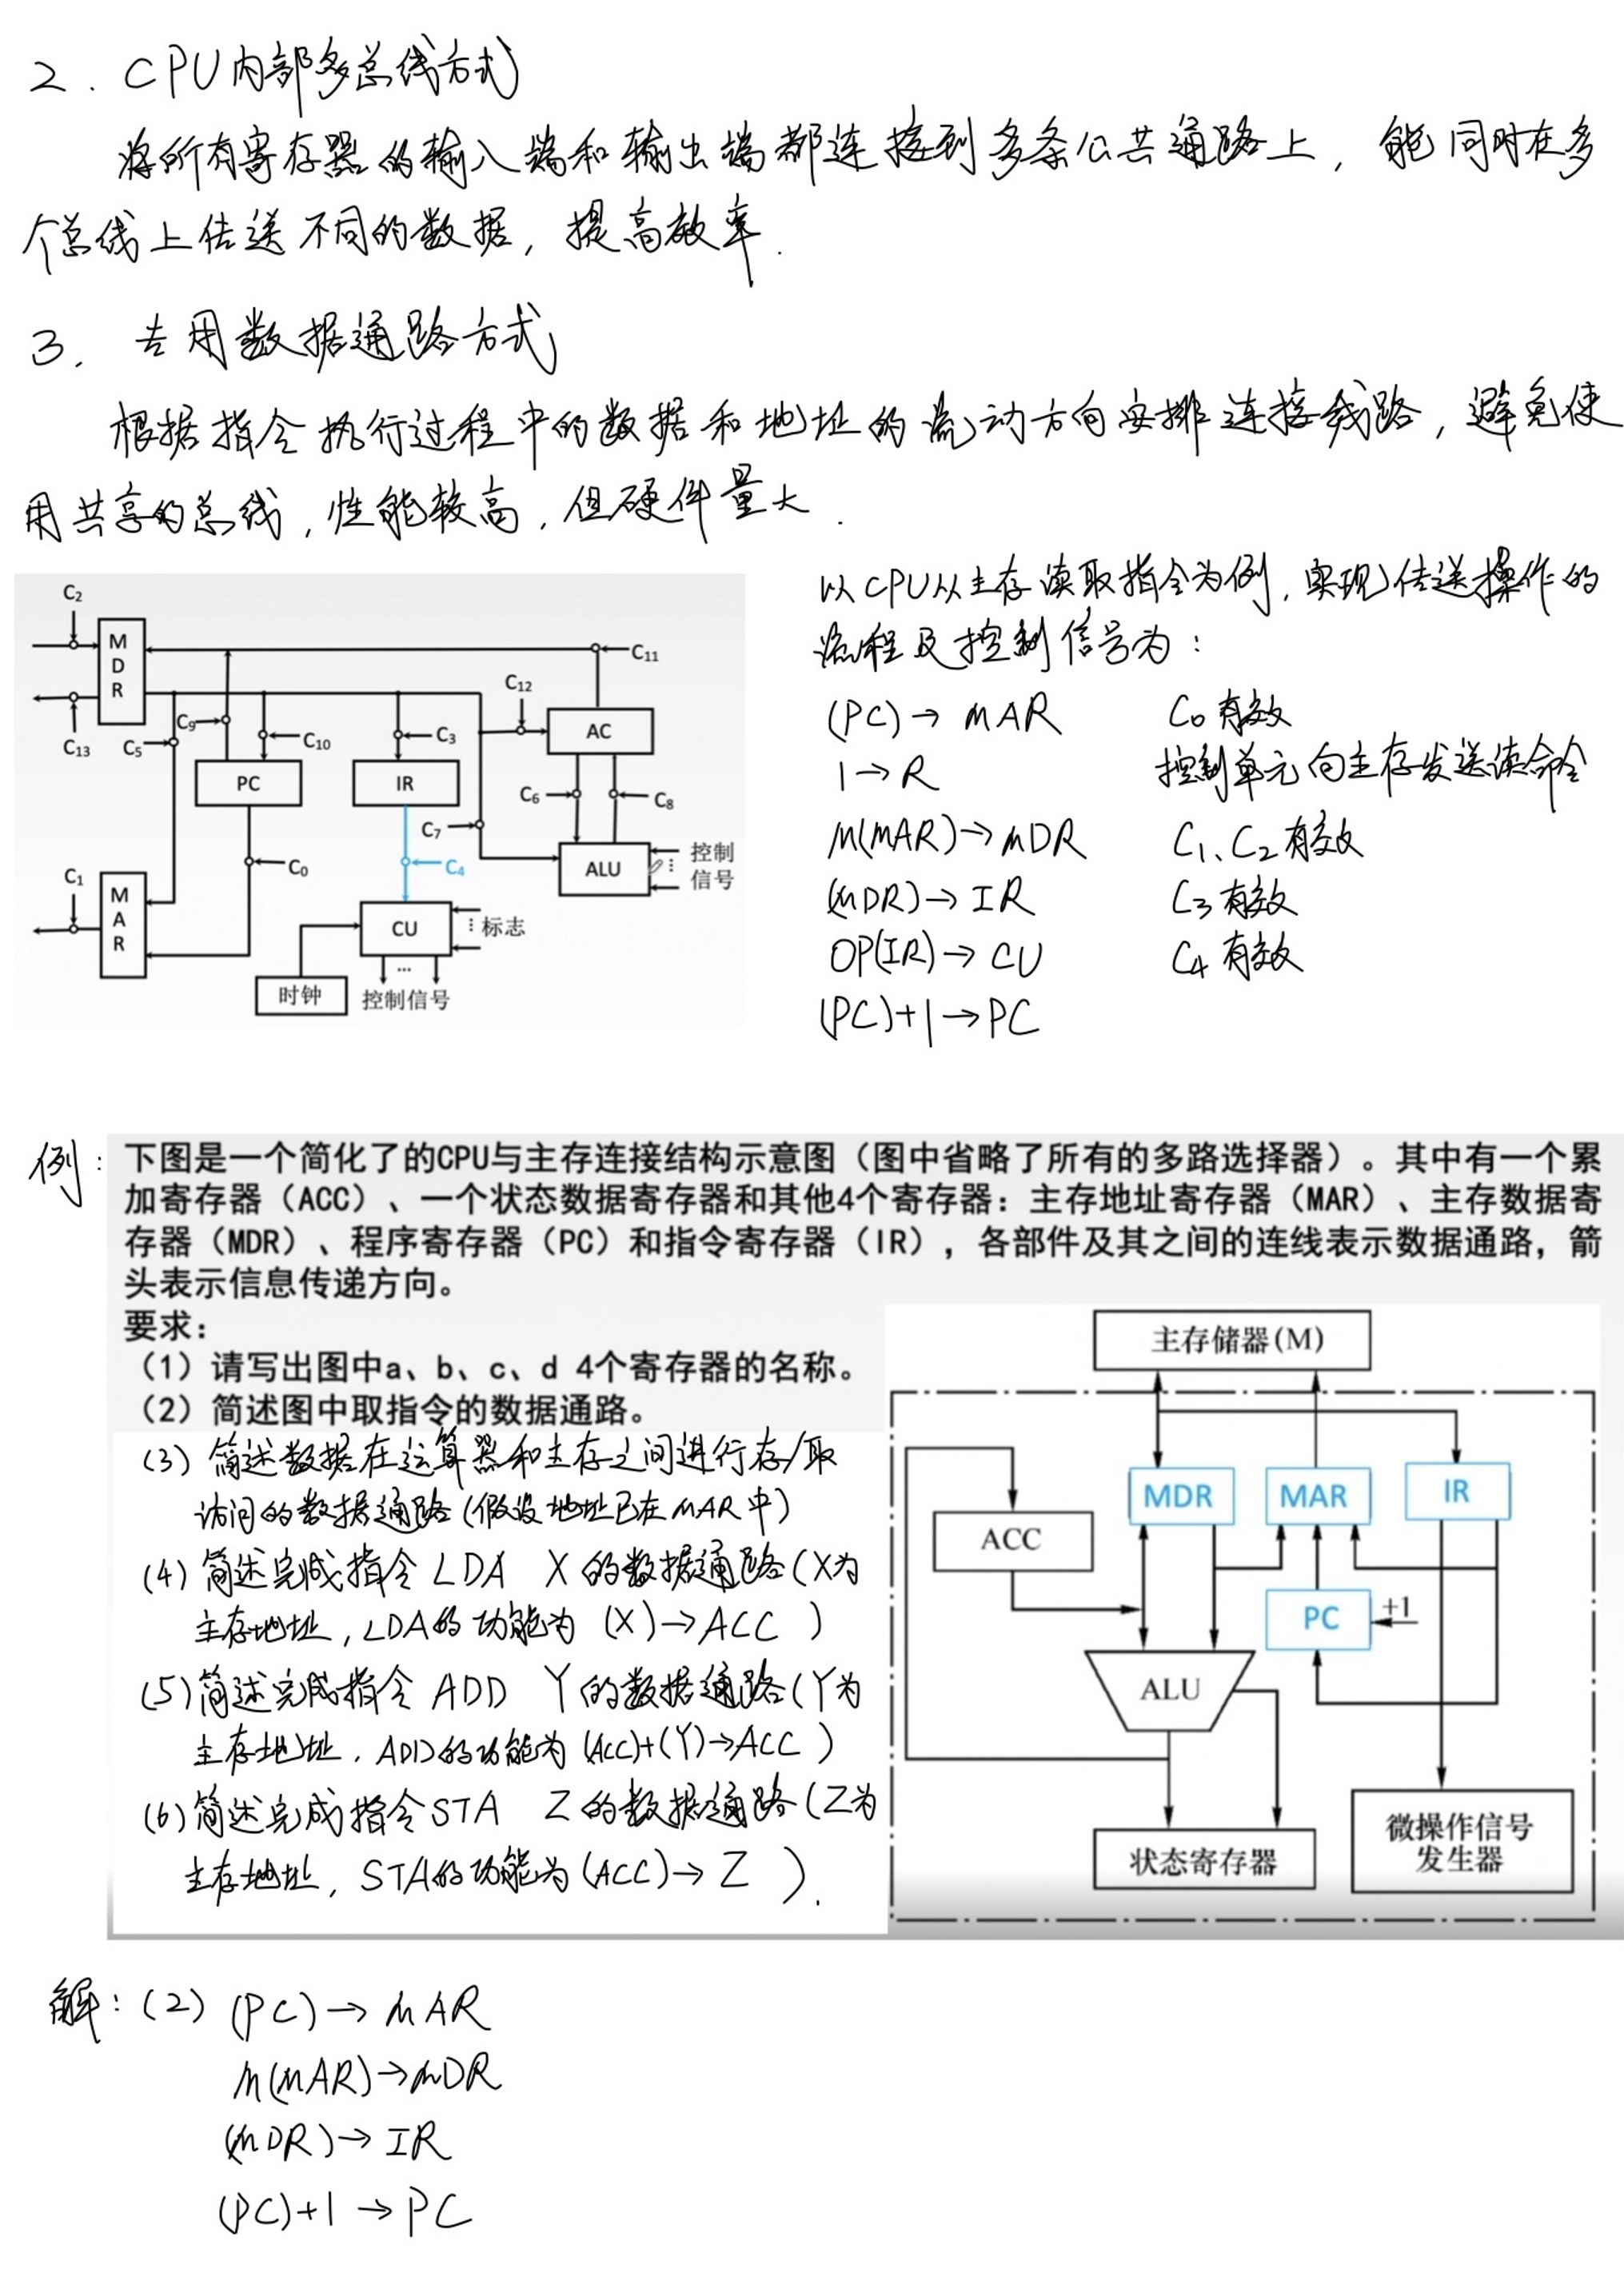 2. CPU内部多总线方式
将所有寄存器的输入端和输出端都连接到多条公共通路上，能同时在多
个总线上传送不同的数据，提高效率.
3. 专用数据通路方式
根据指令执行过程中的数据和地址的流动方向安排连接线路，避免使
用共享的总线，性能较高，但硬件量大.
C₂
MDR
C₁₁
C₁₂
C₉
C₁₃
C₅
C₁₀
C₃
AC
PC
IR
C₆
C₈
C₇
C₀
C₄
ALU
控制
信号
C₁
MAR
CU
标志
时钟
控制信号
以CPU从主存读取指令为例，实现传送操作的
流程及控制信号为：
(PC)→MAR C₀有效
1→R 控制单元向主存发送读命令
M(MAR)→MDR C₁、C₂有效
(MDR)→IR C₃有效
OP(IR)→CU C₄有效
(PC)+1→PC
例：
下图是一个简化了的CPU与主存连接结构示意图（图中省略了所有的多路选择器）。其中有一个累
加寄存器（ACC）、一个状态数据寄存器和其他4个寄存器：主存地址寄存器（MAR）、主存数据寄
存器（MDR）、程序寄存器（PC）和指令寄存器（IR），各部件及其之间的连线表示数据通路，箭
头表示信息传递方向。
要求：
（1）请写出图中a、b、c、d 4个寄存器的名称。
（2）简述图中取指令的数据通路。
(3) 简述数据在运算器和主存之间进行存/取
访问的数据通路(假设地址已在MAR中)
(4) 简述完成指令LDA X的数据通路(X为
主存地址，LDA的功能为 (X)→ACC )
(5) 简述完成指令 ADD Y的数据通路(Y为
主存地址，ADD的功能为 (ACC)+(Y)→ACC )
(6) 简述完成指令STA Z的数据通路(Z为
主存地址，STA的功能为(ACC)→Z ).
主存储器(M)
MDR
MAR
IR
ACC
PC
+1
ALU
状态寄存器
微操作信号
发生器
解：(2) (PC)→MAR
M(MAR)→MDR
(MDR)→IR
(PC)+1→PC